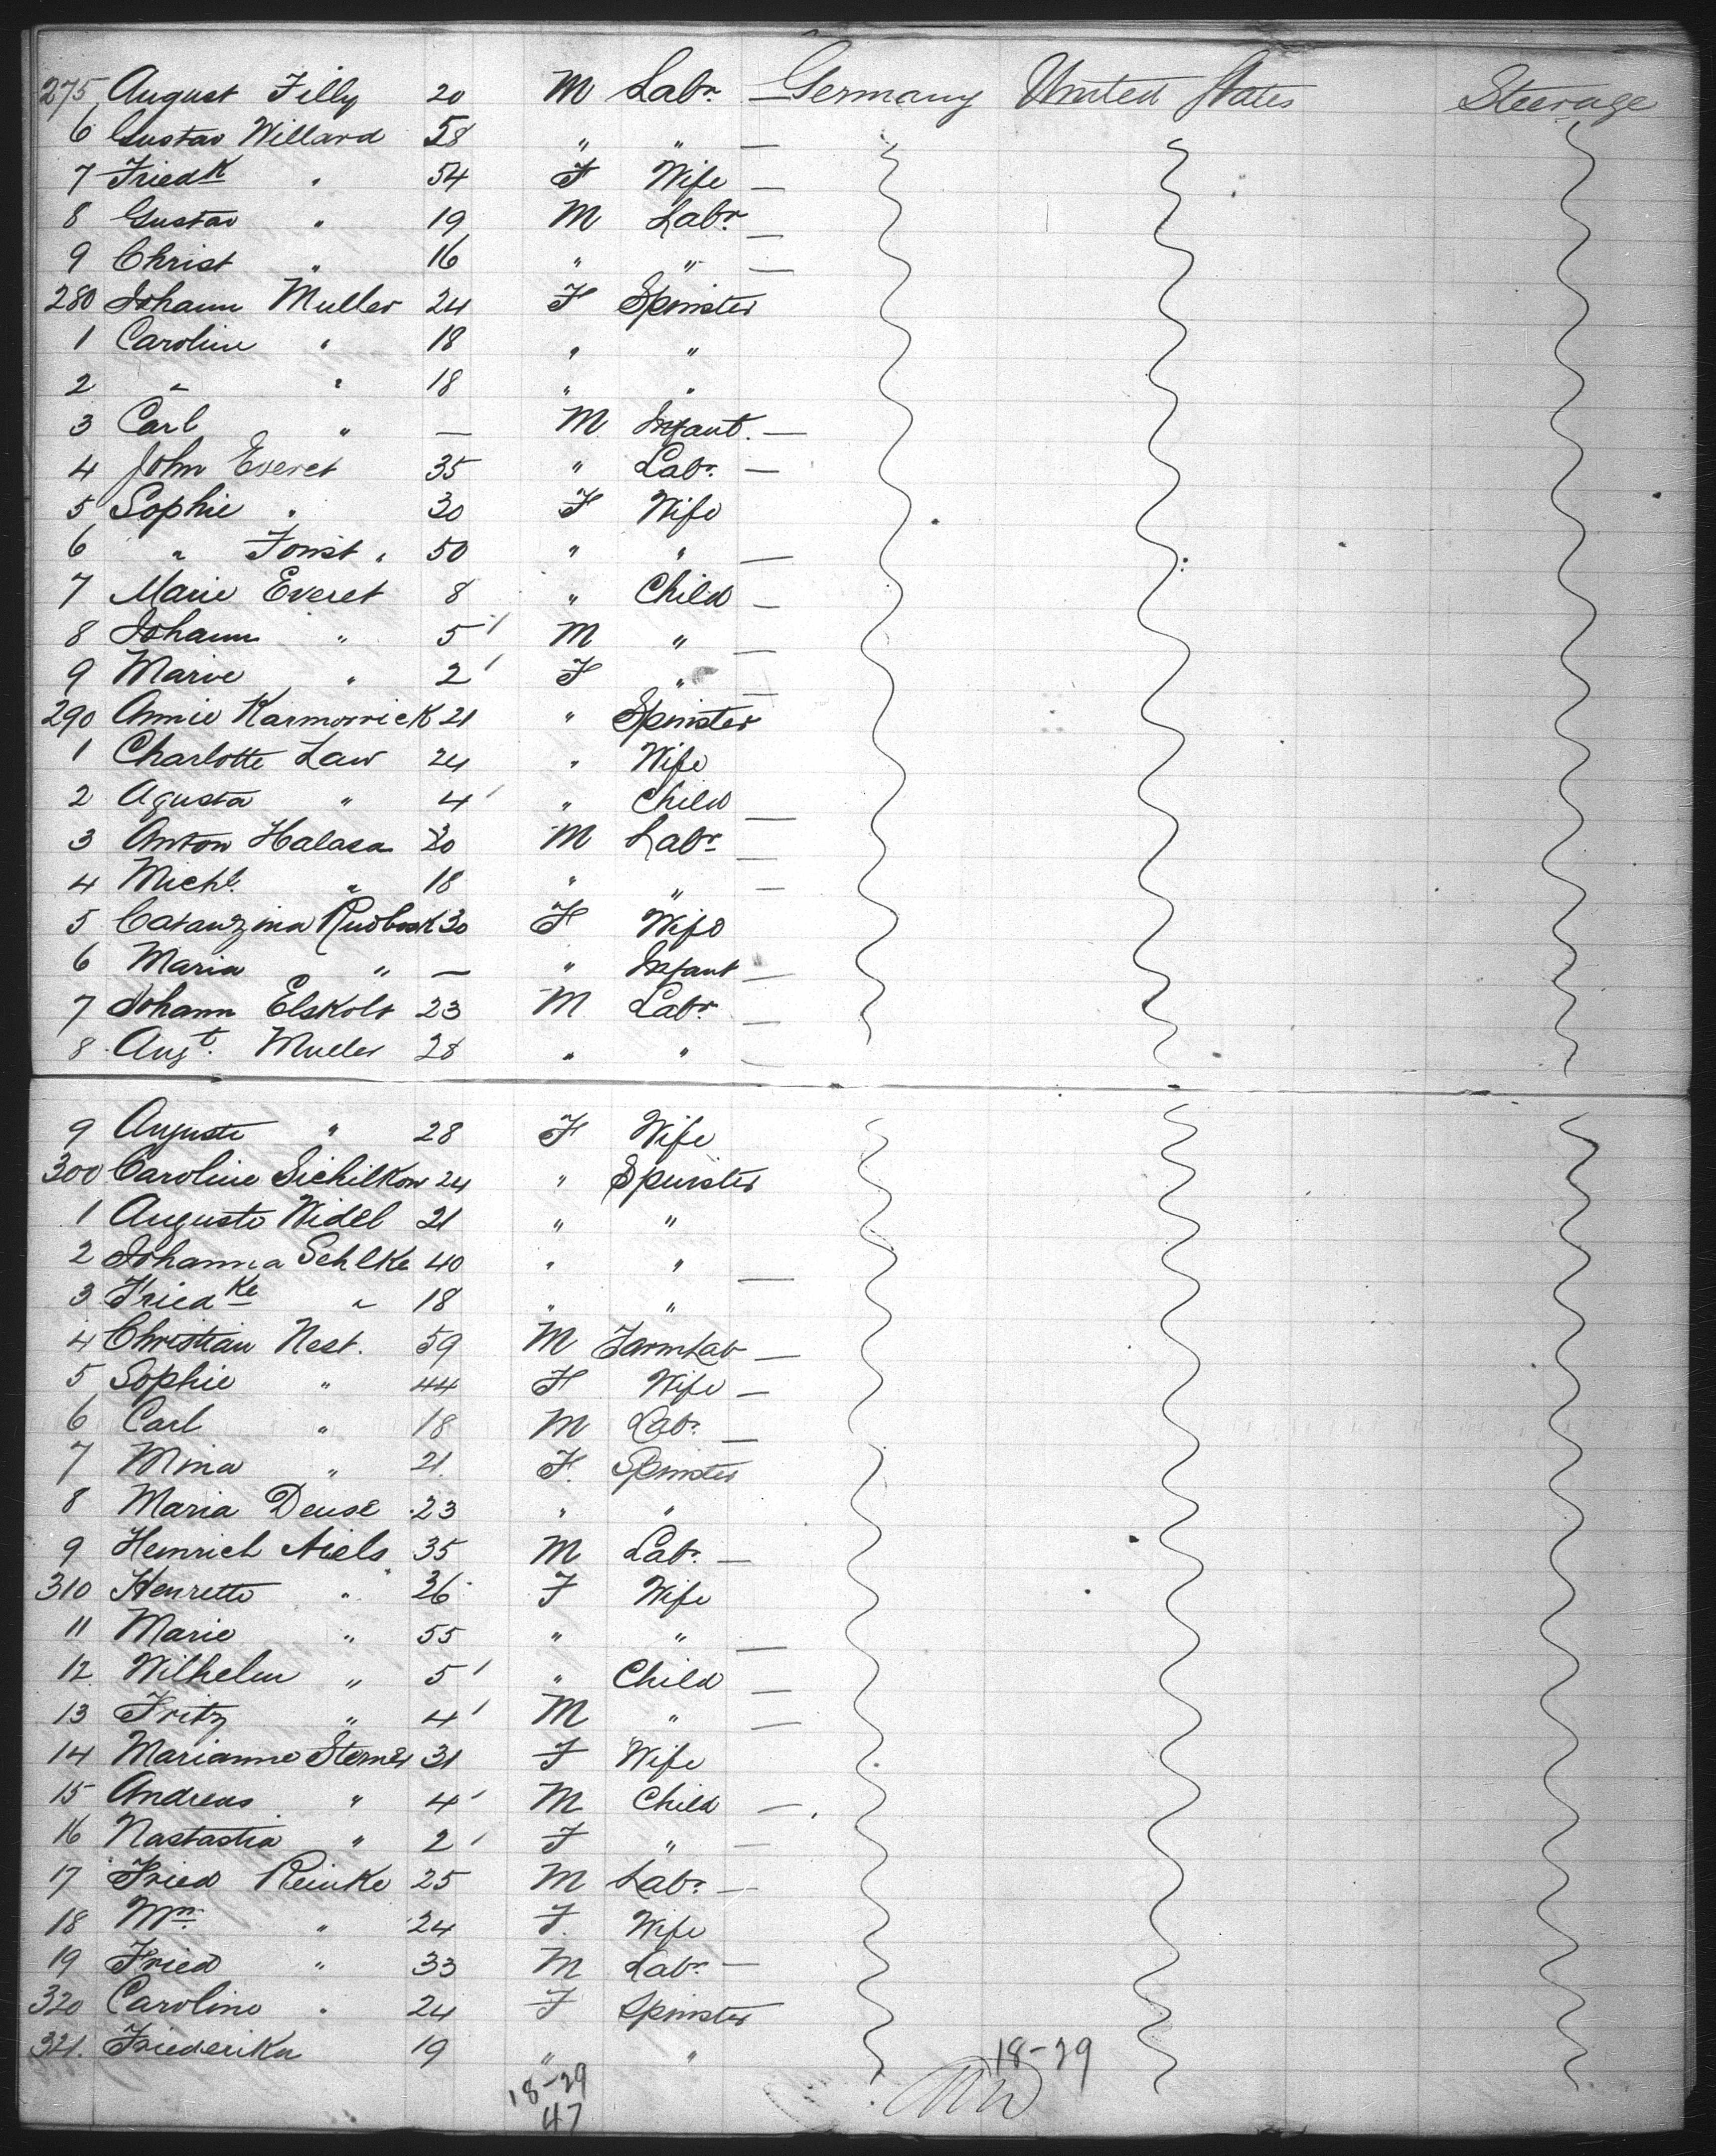 275 August Filly 20 M Labr. — Germany United States Steerage
6 Gustav Willard 58 " " —
7 Friedk " 54 F Wife —
8 Gustav " 19 M Labr. —
9 Christ " 16 " " —
280 Johann Muller 24 F Spinster
1 Caroline " 18 " "
2 " " 18 " "
3 Carl " — M Infant. —
4 John Everet 35 " Labr. —
5 Sophie " 30 F Wife
6 " 50 " " —
7 Marie Everet 8 " Child —
8 Johann " 5 M " —
9 Marie " 2 F " —
290 Annie 21 " Spinster
1 Charlotte Law 24 " Wife
2 Agusta " 4 " Child —
3 Anton Halasa 20 M Labr. —
4 Michl. " 18 " " —
5 30 F Wife
6 Maria " — " Infant —
7 Johann 23 M Labr. —
8 Augt. Muller 28 " " —
9 Auguste " 28 F Wife
300 Caroline 24 " Spinster
1 Auguste Widel 21 " "
2 Johanna Sehlke 40 " " —
3 Friedke " 18 " "
4 Christian Nest. 59 M Farm Lab —
5 Sophie " 44 F Wife —
6 Carl " 18 M Labr. —
7 Mina " 21. F. Spinster
8 Maria Deuse 23 " "
9 Heinrich Niels 35 M Labr. —
310 Henrette " 26 F Wife
11 Marie " 55 " " —
12 Wilhelm " 5 " Child —
13 Fritz " 4 M " —
14 Marianne Sterner 31 F Wife
15 Andreas " 4 M Child —
16 Nastastia " 2 F " —
17 Fried Reinke 25 M Labr. —
18 Mn " 24 F. Wife
19 Fried " 33 M Labr. —
320 Caroline " 24 F Spinster
321. Friederika 19 " "
18-29
18-29
47